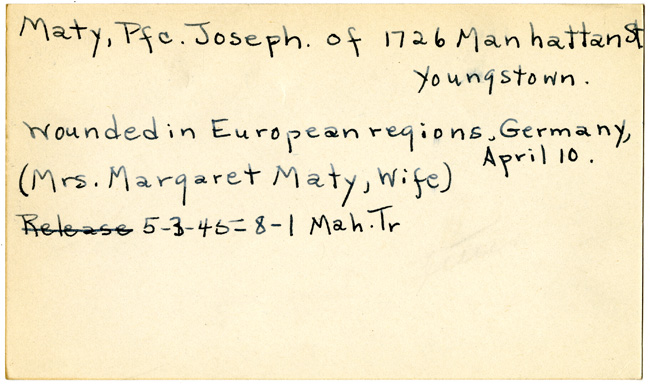 Maty, Pfc. Joseph. of 1726 Manhattan St
Youngstown.
Wounded in European regions. Germany,
April 10.
(Mrs. Margaret Maty, Wife)
Release 5-3-45=8-1 Mah. Tr